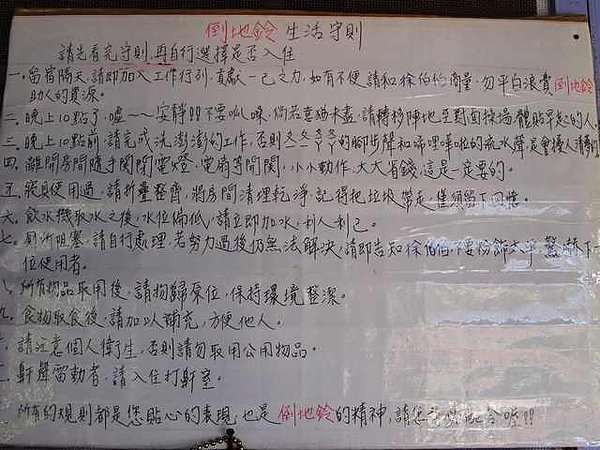 倒地鈴 生活守則
請先看完守則,再自行選擇是否入住
一.留宿隔天,請即加入工作行列,貢獻一己之力,如有不便請和徐伯伯商量,勿平白浪費倒地鈴
助人的資源。
二.晚上10點了,噓~~安靜!!不要叭噗,倘若意猶未盡,請轉移陣地至對面操場,體貼早起的人。
三.晚上10點前,請完成洗澎澎的工作,否則ㄊㄊㄊㄊ的腳步聲和嘩哩嘩啦的流水聲是會擾人清夢
四.離開房間隨手關閉電燈、電扇等開關,小小動作,大大省錢,這是一定要的。
五.寢具使用過,請折疊整齊,將房間清理乾淨,記得把垃圾帶走,僅須留下回憶。
六.飲水機取水之後,水位偏低,請立即加水,利人利己。
七.廁所阻塞,請自行處理,若努力過後仍無法解決,請即告知徐伯伯,不要粉飾太平,驚嚇下一
位使用者。
所有物品取用後,請物歸原位,保持環境整潔。
九.食物取食後,請加以補充,方便他人。
請注意個人衛生,否則請勿取用公用物品。
鼾聲雷動者,請入住打鼾室。
所有的規則都是您貼心的表現,也是倒地鈴的精神,請您